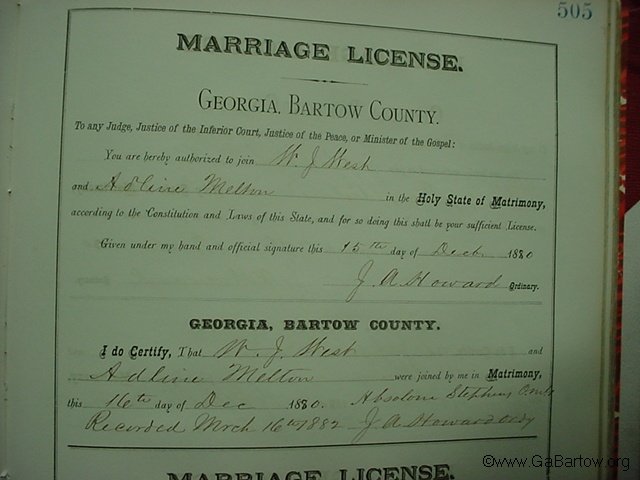 505
MARRIAGE LICENSE.
GEORGIA, BARTOW COUNTY.
To any Judge, Justice of the Inferior Court, Justice of the Peace, or Minister of the Gospel:
You are hereby authorized to join W. J. West
and Adline Melton in the Holy State of Matrimony,
according to the Constitution and Laws of this State, and for so doing this shall be your sufficient License.
Given under my hand and official signature this 15th day of Dec 1880
J. A. Howard Ordinary.
GEORGIA, BARTOW COUNTY.
I do Certify, That W. J. West and
Adline Melton were joined by me in Matrimony,
this 16th day of Dec 1880. Absolom Stephens
Recorded Mrch 16th 1882 J A Howard Ordy
MARRIAGE LICENSE.
©www.GaBartow.org